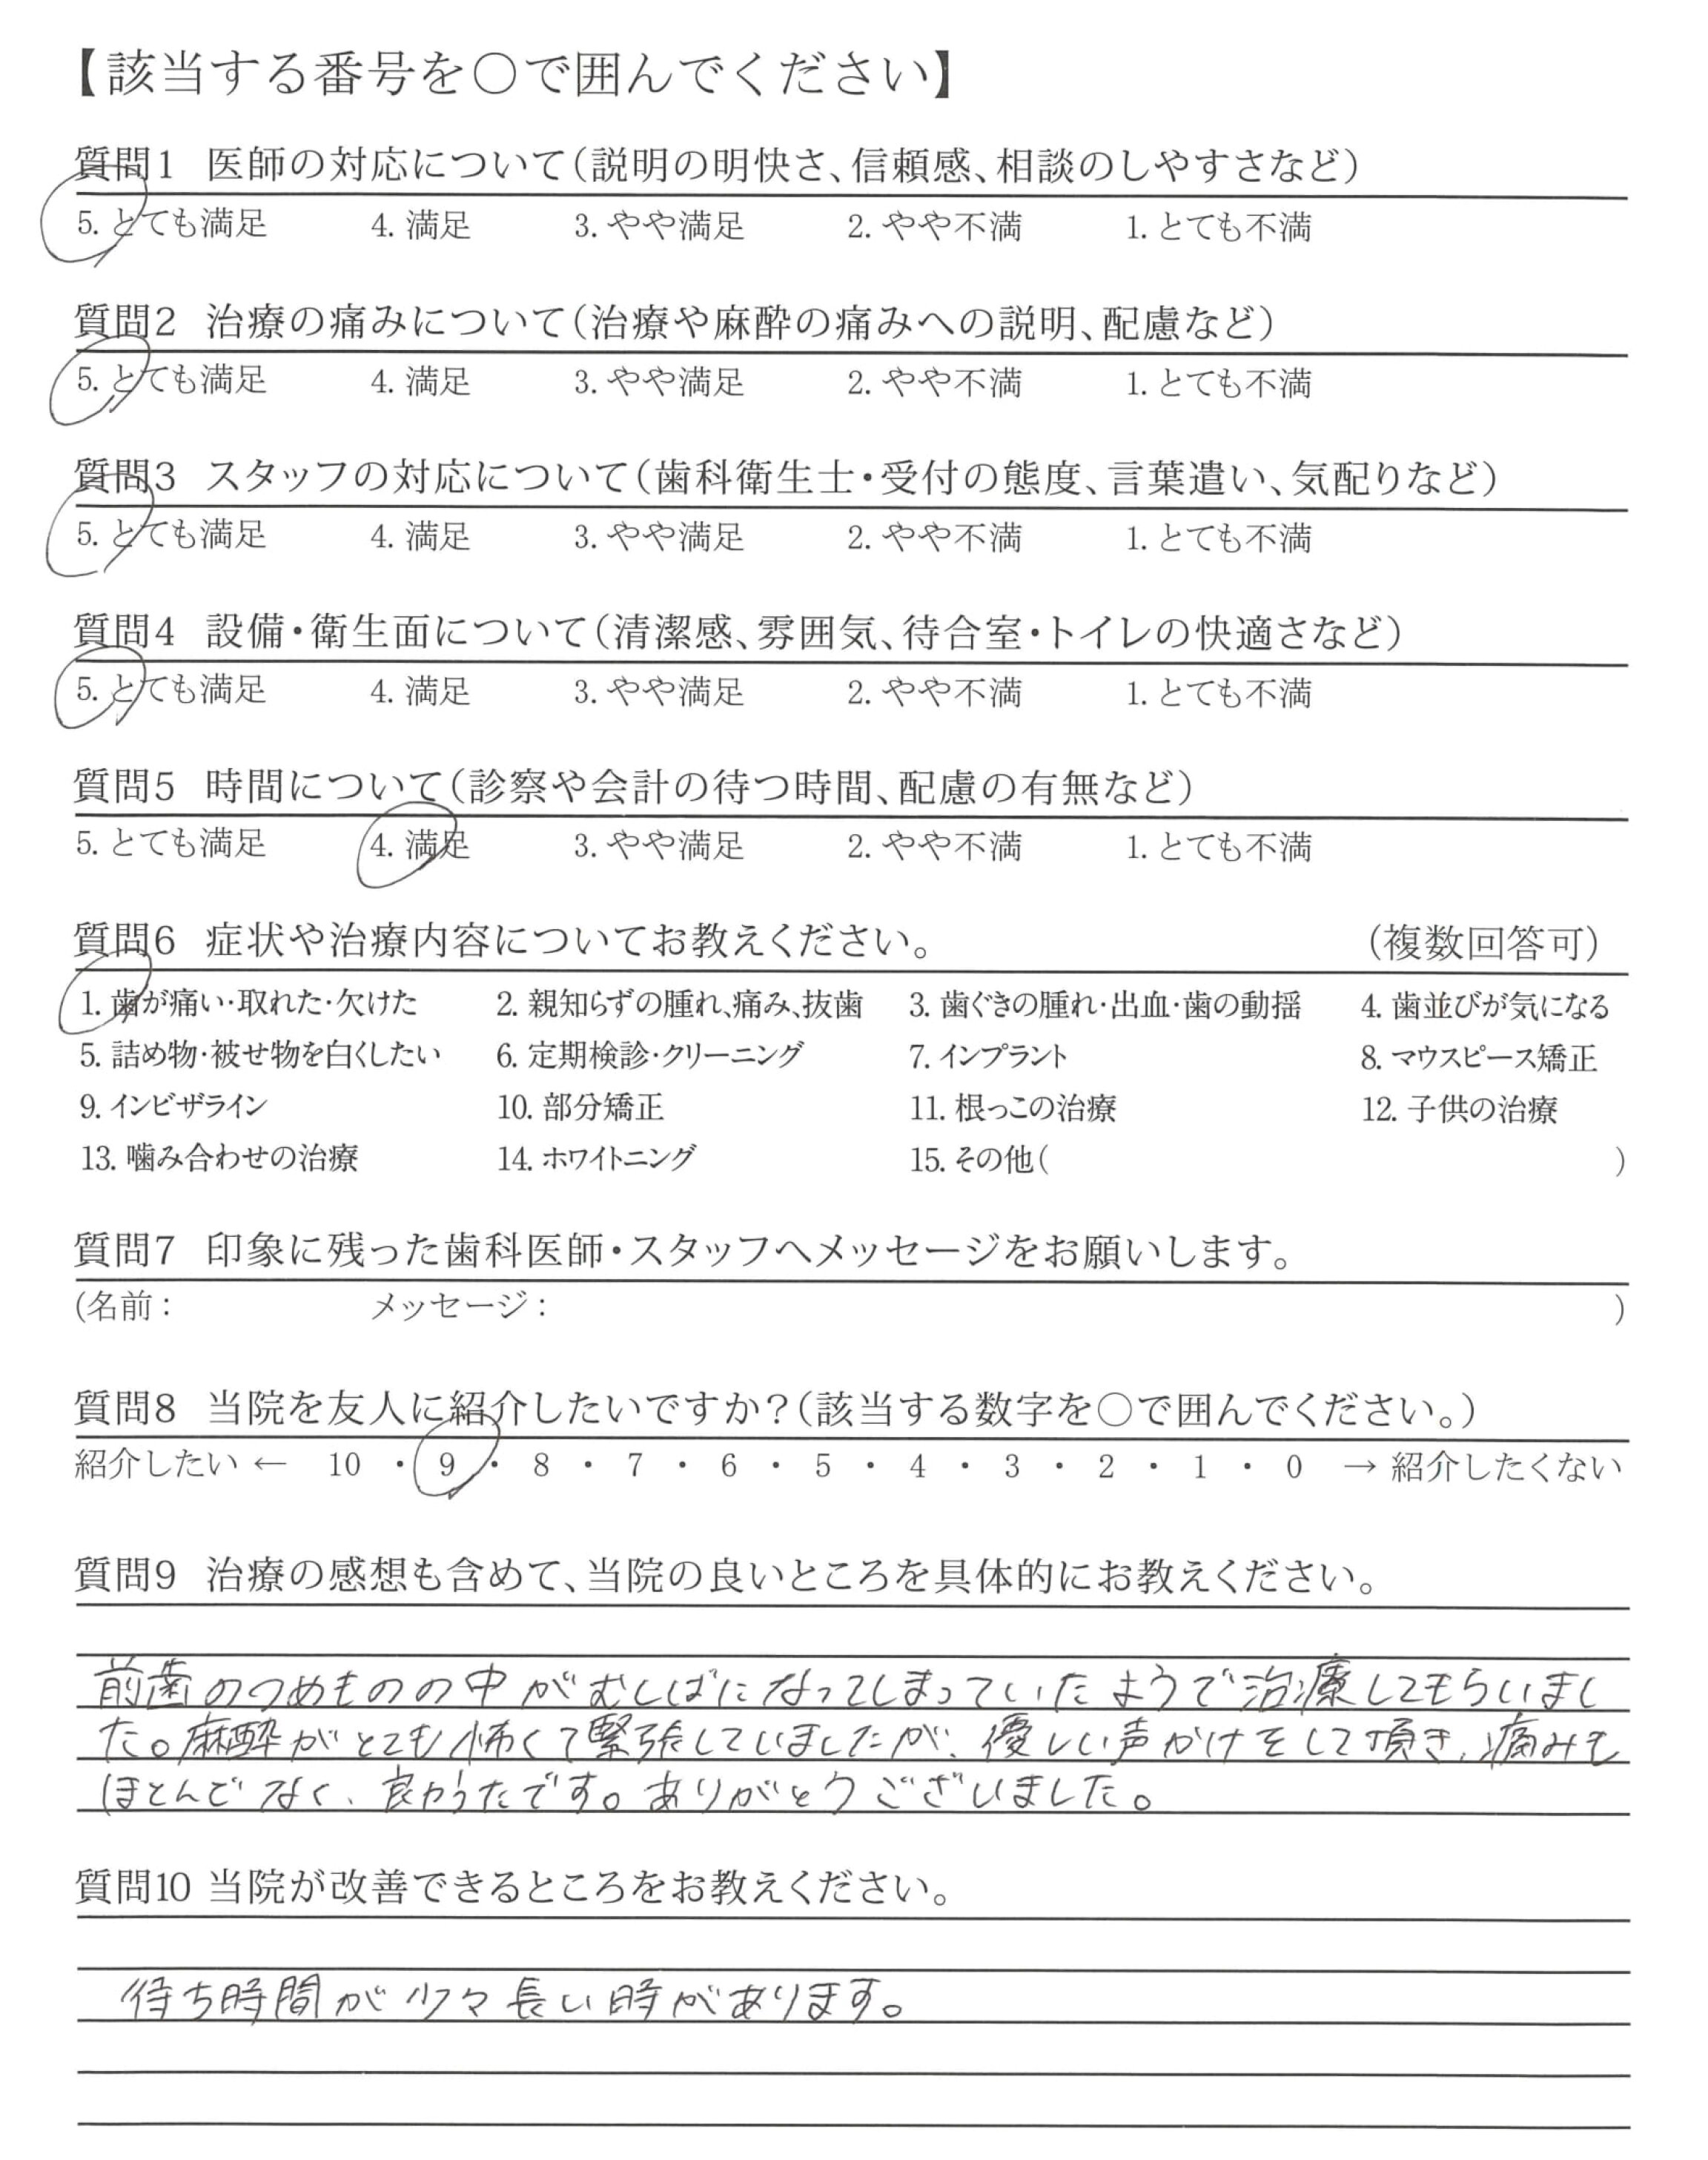 【該当する番号を○で囲んでください】
質問1 医師の対応について(説明の明快さ、信頼感、相談のしやすさなど)
5. とても満足 4. 満足 3. やや満足 2. やや不満 1. とても不満
質問2 治療の痛みについて(治療や麻酔の痛みへの説明、配慮など)
5. とても満足 4. 満足 3. やや満足 2. やや不満 1. とても不満
質問3 スタッフの対応について(歯科衛生士・受付の態度、言葉遣い、気配りなど)
5. とても満足 4. 満足 3. やや満足 2. やや不満 1. とても不満
質問4 設備・衛生面について(清潔感、雰囲気、待合室・トイレの快適さなど)
5. とても満足 4. 満足 3. やや満足 2. やや不満 1. とても不満
質問5 時間について(診察や会計の待つ時間、配慮の有無など)
5. とても満足 4. 満足 3. やや満足 2. やや不満 1. とても不満
質問6 症状や治療内容についてお教えください。 (複数回答可)
1. 歯が痛い・取れた・欠けた 2. 親知らずの腫れ、痛み、抜歯 3. 歯ぐきの腫れ・出血・歯の動揺 4. 歯並びが気になる
5. 詰め物・被せ物を白くしたい 6. 定期検診・クリーニング 7. インプラント 8. マウスピース矯正
9. インビザライン 10. 部分矯正 11. 根っこの治療 12. 子供の治療
13. 噛み合わせの治療 14. ホワイトニング 15. その他( )
質問7 印象に残った歯科医師・スタッフへメッセージをお願いします。
(名前: メッセージ: )
質問8 当院を友人に紹介したいですか?(該当する数字を○で囲んでください。)
紹介したい ← 10 ・ 9 ・ 8 ・ 7 ・ 6 ・ 5 ・ 4 ・ 3 ・ 2 ・ 1 ・ 0 → 紹介したくない
質問9 治療の感想も含めて、当院の良いところを具体的にお教えください。
前歯のつめものの中がむしばになってしまっていたようで治療してもらいまし
た。麻酔がとても怖くて緊張していましたが、優しい声かけをして頂き、痛みも
ほとんどなく、良かったです。ありがとうございました。
質問10 当院が改善できるところをお教えください。
待ち時間が少々長い時があります。